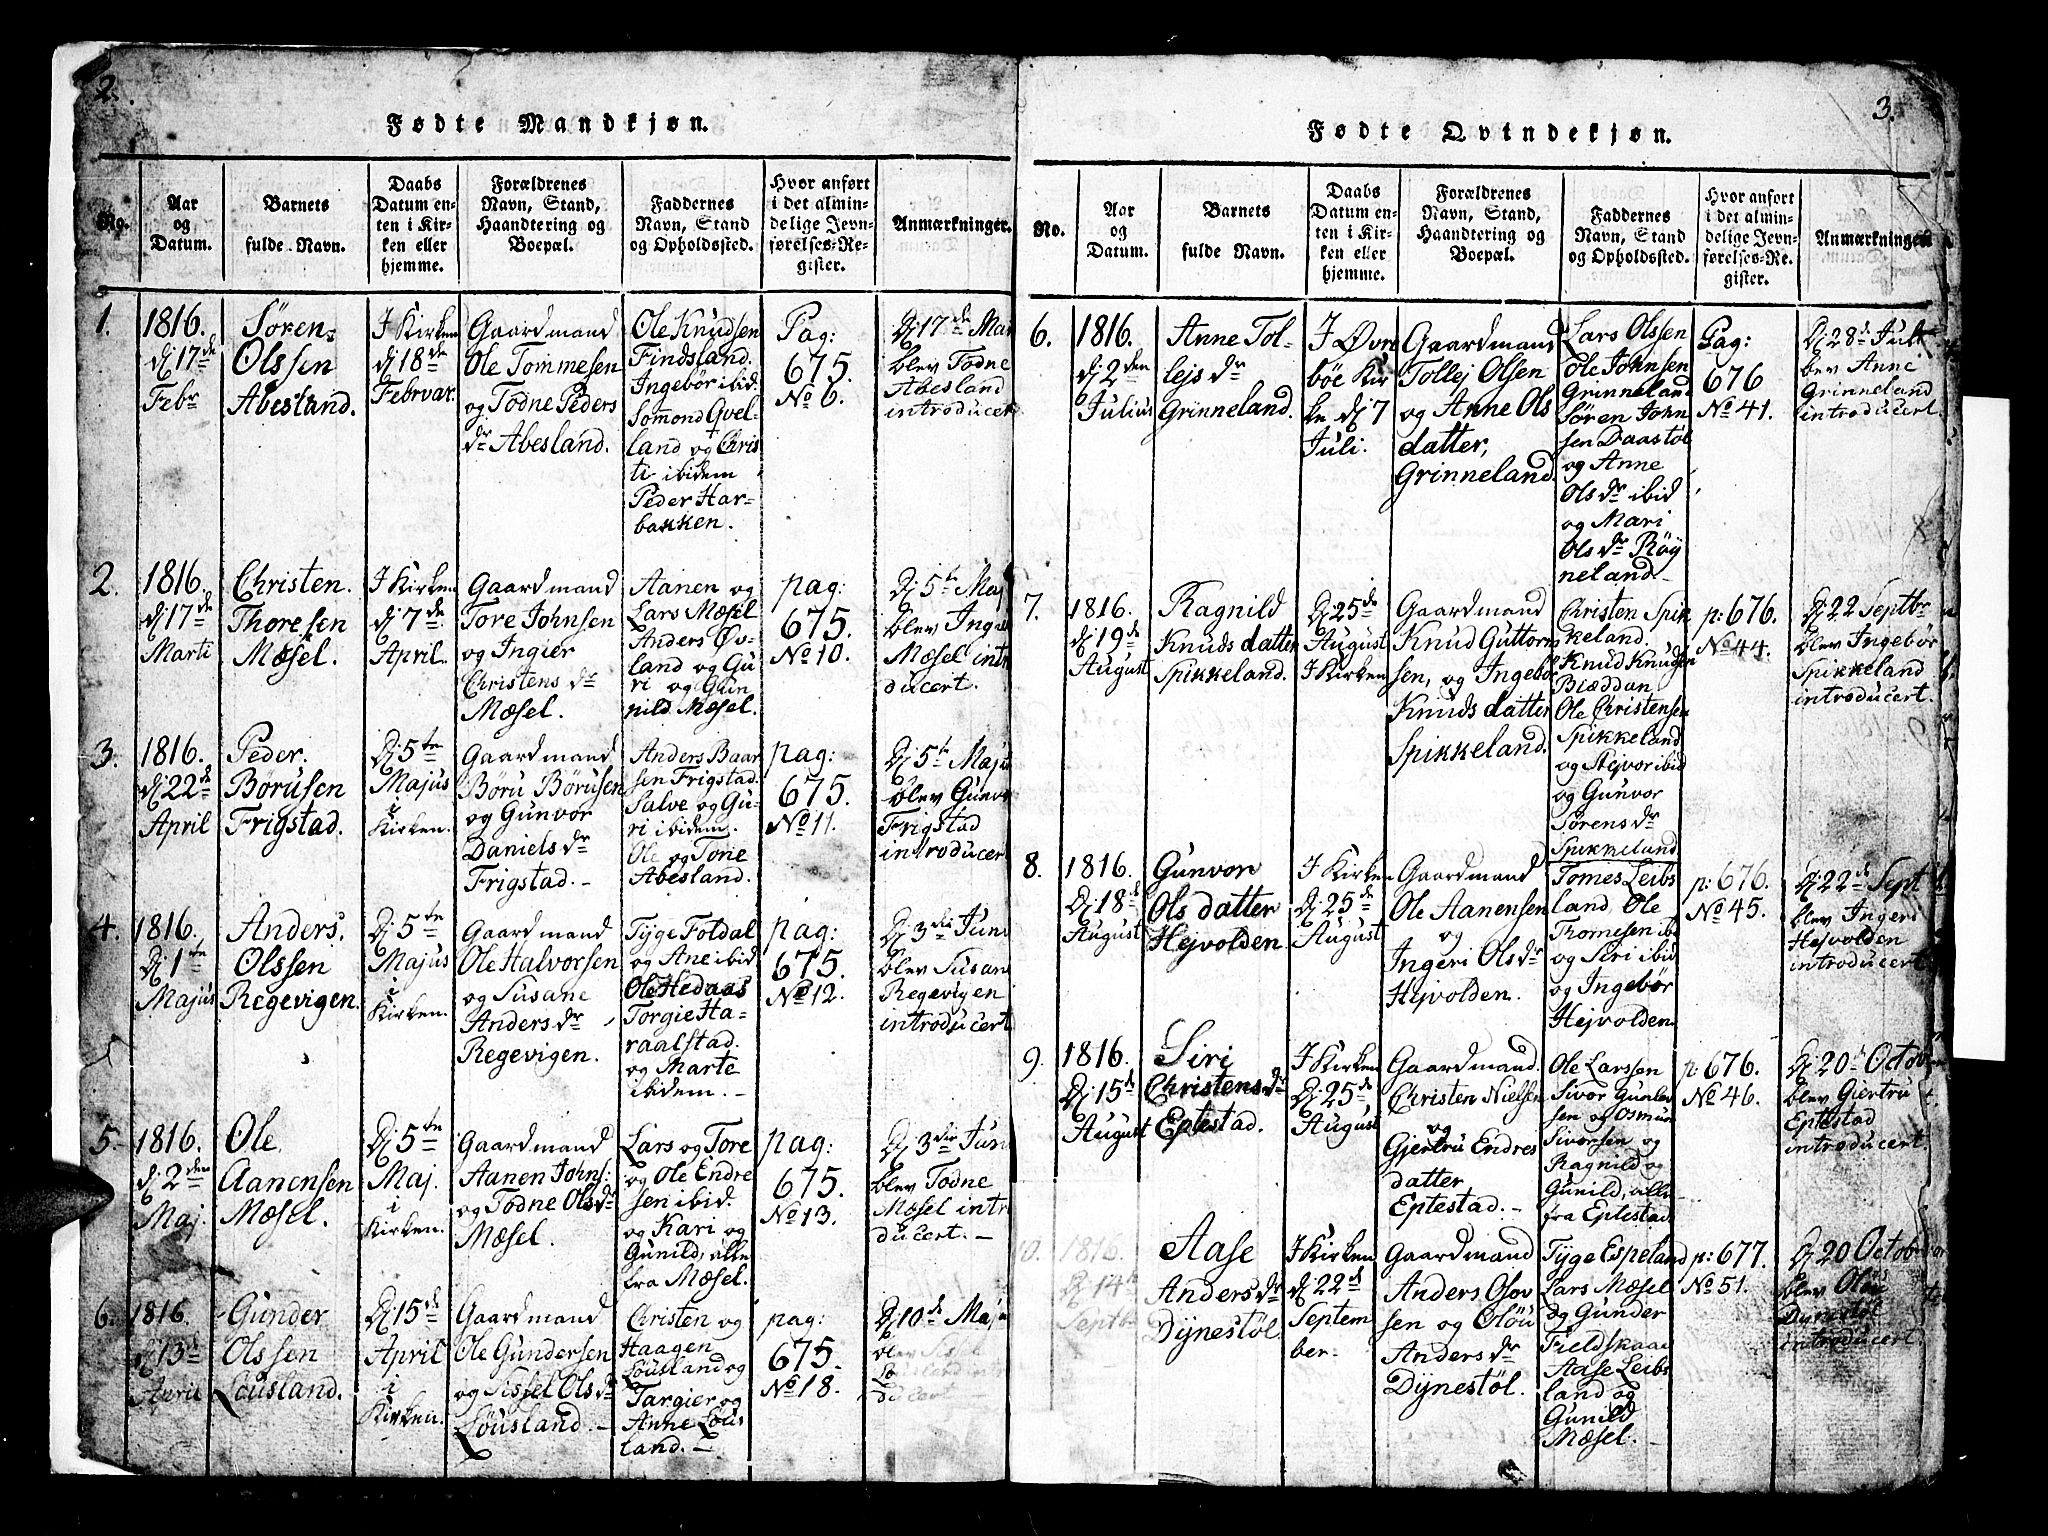 2.
Fødte Mandkjøn.
No.
Aar
og
Datum.
Barnets
fulde Navn.
Daabs
Datum en-
ten i Kir-
ken eller
hjemme.
Forældrenes
Navn, Stand,
Haandtering og
Boepæl.
Faddernes
Navn, Stand
og Opholdssted.
Hvor anført
i det almin-
delige Jevn-
førelses-Re-
gister.
Anmærkninger.
1.
1816.
dj 17de
Febr
Søren
Olssen
Abesland.
I Kirken
dj 18de
Februar.
Gaardmand
Ole Tommesen
og Todne Peders
dr Abesland.
Ole Knudsen
Findsland.
Ingebör ibid.
Somond Qvel-
land og Chris
ti ibidem
Peder Har-
bakken.
Pag:
675.
No 6.
Dj 17de Mar
blev Todne
Abesland
introducert
2.
1816.
dj 17de
Marti
Christen
Thoresen
Mæsel.
I Kirken
dj 7de
April.
Gaardmand
Tore Johnsen
og Ingier
Christens dr
Mæsel.
Aanen og
Lars Mæsel
Anders Øv-
land og Gu
ri og Gun
nild Mæsel.
pag:
675.
No 10.
Dj 5te Maj
blev Inge
Mæsel intr
ducert.
3.
1816.
dj 22de
April
Peder
Börusen
Frigstad.
Dj 5te
Majus
i
Kirken.
Gaardmand
Böru Börusen
og Gunvor
Daniels dr
Frigstad.
Anders Baar
sen Frigstad.
Salve og Gu-
ri ibidem.
Ole og Tone
Abesland.
pag:
675.
No 11.
Dj 5te Majus
blev Gunvo
Frigstad
introducert
4.
1816.
Dj 1te
Majus
Anders
Olssen
Regevigen.
Dj 5te
Majus
i
Kirken.
Gaardmand
Ole Halvorsen
og Susane
Anders dr
Regevigen.
Tyge Foldal
og Ane ibid
Ole Hedaas
Torgie Ha-
raalstad.
og Marte
ibidem.
pag:
675.
No 12.
Dj 3die Juni
blev Susane
Regevigen
introducert
5.
1816.
dj 2den
Maj.
Ole
Aanensen
Mæsel.
Dj 5te
Maj.
i
Kirken.
Gaardmand
Aanen Johns:
og Todne Ols dr
Mæsel.
Lars og Tore
og Ole Endre
sen ibid.
og Kari og
Gunild, alle
fra Mæsel.
pag:
675.
No 13.
Dj 3die Juni
blev Todne
Mæsel intr
ducert.
6.
1816.
dj 13de
April
Gunder
Olssen
Löusland.
Dj 15de
April
i
Kirken.
Gaardmand
Ole Gundersen
og Sissel Ols dr
Löusland.
Christen og
Haagen
Löusland og
Targier og
Anne Löus
land.
pag:
675.
No 18.
Dj 10de Maj
ducert
3.
Fødte Qvindekjøn.
No.
Aar
og
Datum.
Barnets
fulde Navn.
Daabs
Datum en-
ten i Kir-
ken eller
hjemme.
Forældrenes
Navn, Stand,
Haandtering og
Boepæl.
Faddernes
Navn, Stand
og Opholdssted.
Hvor anført
i det almin-
delige Jevn-
førelses-Re-
gister.
Anmærkninger
6.
1816.
dj 2den
Julius
Anne Tol-
lejs dr
Grinneland.
I Øvre
böe Kir
ke dj 7
Juli.
Gaardmand
Tollej Olsen
og Anne Ols
datter,
Grinneland.
Lars Olssen
Ole Johnsen
Grinneland
Sören John
sen Daastöl
og Anne
Ols dr ibid
og Mari
Ols dr Röy
neland.
Pag:
676
No 41.
Dj 28de Juli
bev Anne
Grinneland
introducert.
7.
1816.
dj 19de
August
Ragnild
Knuds datter
Spikkeland.
Dj 25de
August
I Kirken
Gaardmand
Knud Guttorm
sen, og Ingebör
Knuds datter
Spikkeland.
Christen Spik
keland.
Knud Knudsen
Blæddan
Ole Christensen
Spikkeland
og Stejvor ibid
og Gunvor
Sörens dr
Spikkeland
p: 676.
No 44.
Dj 22 Septbr
blev Ingebör
Spikkeland
introducert.
8.
1816.
Dj 18de
August
Gunvor
Ols datter
Hejvolden
I Kirken
Dj 25de
August
Gaardmand
Ole Aanensen
og
Ingeri Ols dr
Hejvolden.
Tomes Leibs
land, Ole
Thomesen ibi
og Siri ibid
og Ingebör
Hejvolden
p: 676.
No 45.
Dj 22de Sept
blev Ingeri
Hejvolden
introducert
9.
1816.
Dj 15de
August
Siri
Christens dr
Eptestad.
I Kirken
Dj 25de
August
Gaardmand
Christen Nielsen
og
Gjertru Endres
datter
Eptestad.
Ole Larssen
Sivor Gunles
sen og Osmun
Sivorsen og
Ragnild og
Gunild, alle
fra Eptestad.
p: 676.
No 46.
Dj 20de Octobr
blev Giertru
Eptestad
introducert.
10.
1816.
Dj 14de
Septb
Aase
Anders dr
Dynestöl.
I Kirken
dj 22de
Septem
ber.
Gaardmand
Anders Osov
sen og Olöu
Anders dr
Dynestöl.
Tyge Espeland
Lars Mæsel
og Gunder
Fieldskaar
Aase Leibs
land og
Gunild
Mæsel.
p: 677.
No 51.
Dj 20 Octobr
blev Olöu
Dynestöl
introducert.